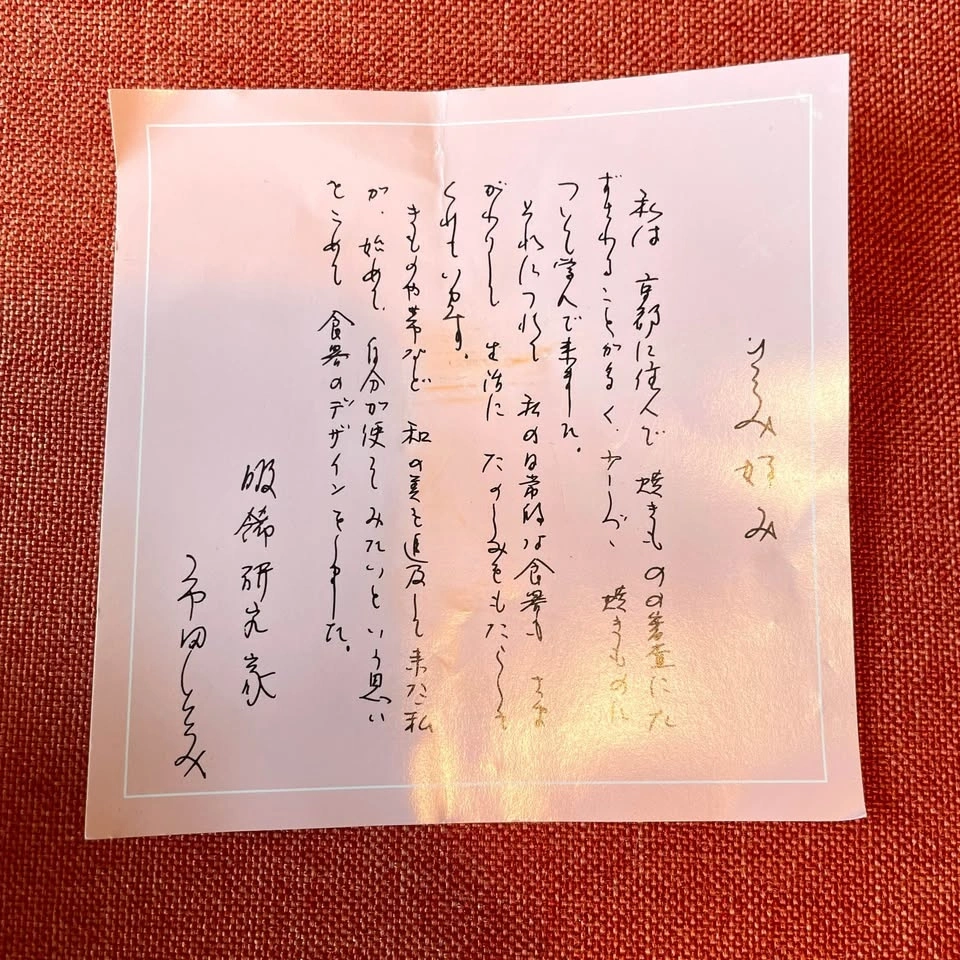 ひろみ好み
私は 京都に住んで 焼きものの審査にた
ずさわることが多く、少しづゝ 焼きものに
ついて学んで来ました。
それにつれて 私の日常的な食器も さま
がわりして 生活に たのしみをもたらして
くれています。
きものや帯など 和の美を追及して来た私
が、始めて、自分が使って みたいという思い
をこめて 食器のデザインをしました。
服飾研究家
市田ひろみ